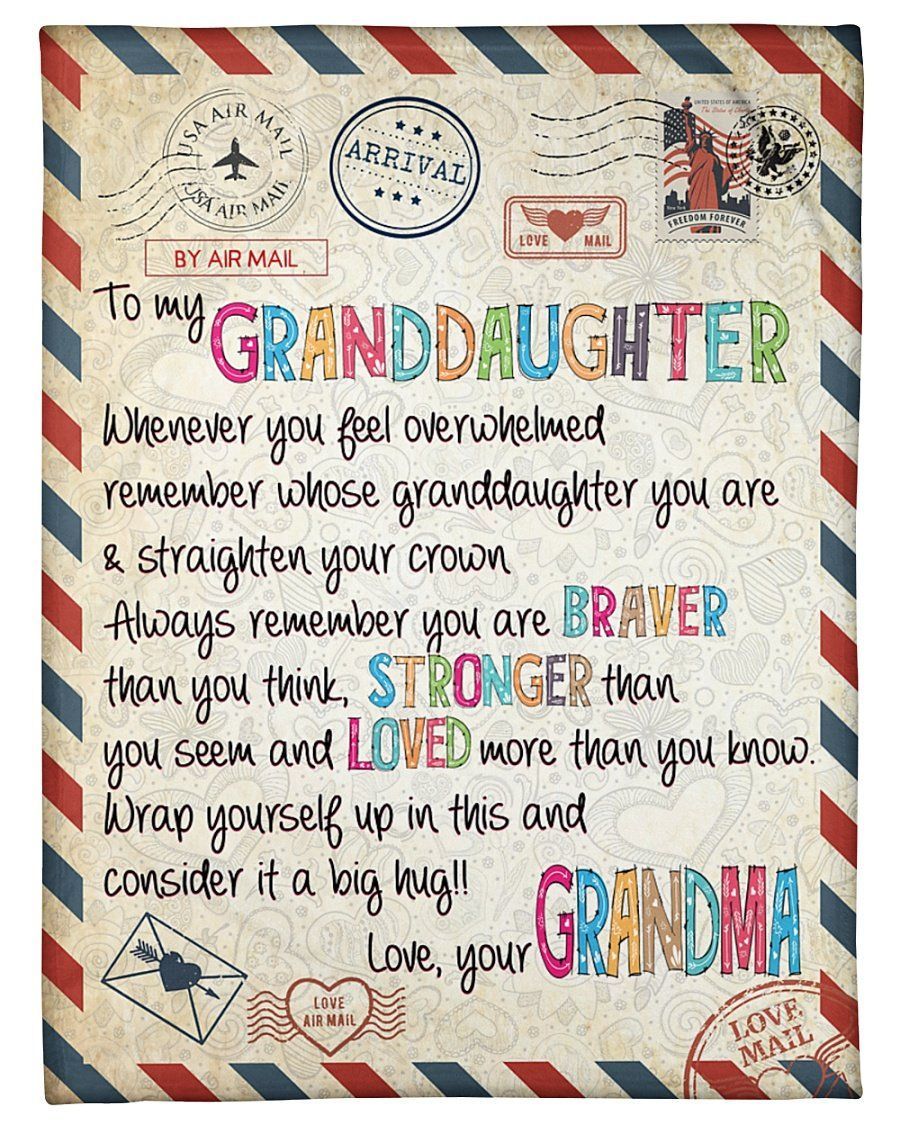 USA AIR MAIL
USA AIR MAIL
ARRIVAL
UNITED STATES OF AMERICA
The Statue of Liberty
New York
FREEDOM FOREVER
LOVE MAIL
BY AIR MAIL
To my GRANDDAUGHTER
Whenever you feel overwhelmed
remember whose granddaughter you are
& straighten your crown
Always remember you are BRAVER
than you think, STRONGER than
you seem and LOVED more than you know.
Wrap yourself up in this and
consider it a big hug!!
Love, your GRANDMA
LOVE
AIR MAIL
LOVE
MAIL